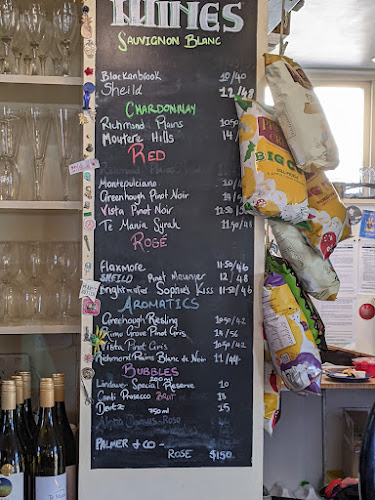 WINES
SAUVIGNON BLANC
Blackenbrook 10/40
Sheild 12/48
CHARDONNAY
Richmond Plains 10.50
Moutere Hills 14/
RED
Montepulciano 12/
Greenhough Pinot Noir 14/
Vista Pinot Noir 12.50/
Te Mania Syrah 11.50/48
ROSE
Flaxmore 11.50/46
SHEILD Pinot Meunier 12/48
Brightwater Sophie's Kiss 11.50/46
AROMATICS
Greenhough Riesling 10.50/42
Rimu Grove Pinot Gris 14/56
Vista Pinot Gris 10.50/42
Richmond Plains Blanc de Noir 11/44
BUBBLES
200ml
Lindauer Special Reserve 10
Conti Prosecco BRUT 15
Deutz 750ml 15
PALMER + CO -
ROSE $150
BIG C